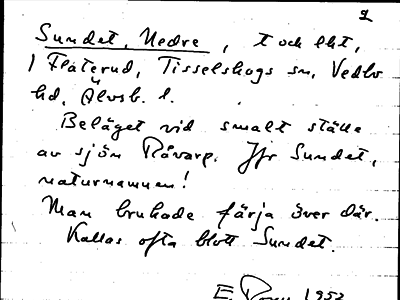 2
Sundet, Nedre, t och lht,
1 Flaterud, Tisselskogs sn, Vedbo
hd, Älvsb. l.
Beläget vid smalt ställe
av sjön Råvarp. Jfr Sundet,
naturnamnen!
Man brukade färja över där.
Kallas ofta blott Sundet.
E. 1952